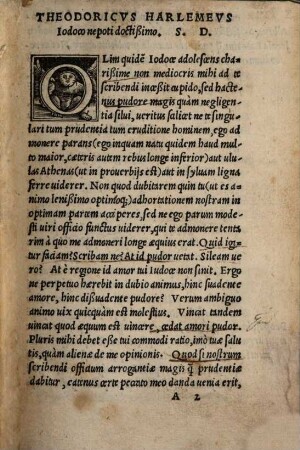 THEODORICVS HARLEMEVS
Iodoco nepoti doctißimo. S. D.
OLim quidẽ Iodoce adolescẽs cha
rißime non mediocris mihi ad te
scribendi inceßit cupido, sed hacte
nus pudore magis quàm negligen
tia silui, veritus scilicet ne te singu
lari tum prudentia tum eruditione hominem, ego ad
monere parans (ego inquam natu quidem haud mul
to maior, cæteris autem rebus longe inferior) aut ulu
las Athenas (ut in prouerbijs est) aut in syluam ligna
ferre viderer. Non quod dubitarem quin tu (ut es a
nimo lenißimo optimoq́;) adhortationem nostram in
optimam partem acciperes, sed ne ego parum mode
sti uiri officio functus viderer, qui te admonere tenta
rim à quo me admoneri longe æquius erat. Quid igi
tur faciam? Scribam ne? At id pudor vetat. Sileam ue
ro? At è regione id amor tui Iodoce non sinit. Ergo
ne perpetuo hærebit in dubio animus, hinc suadente
amore, hinc dißuadente pudore? Verum ambiguo
animo uix quicquàm est molestius, Vincat tandem
uincat quod æquum est uincere, cedat amori pudor.
Pluris mihi debet eße tui commodi ratio, imò tuæ salu
tis, quàm alienæ de me opinionis. Quod si nostrum
scribendi officium arrogantiæ magis q̃ prudentiæ
dabitur, eatenus certe peccanto meo danda uenia erit,
A 2